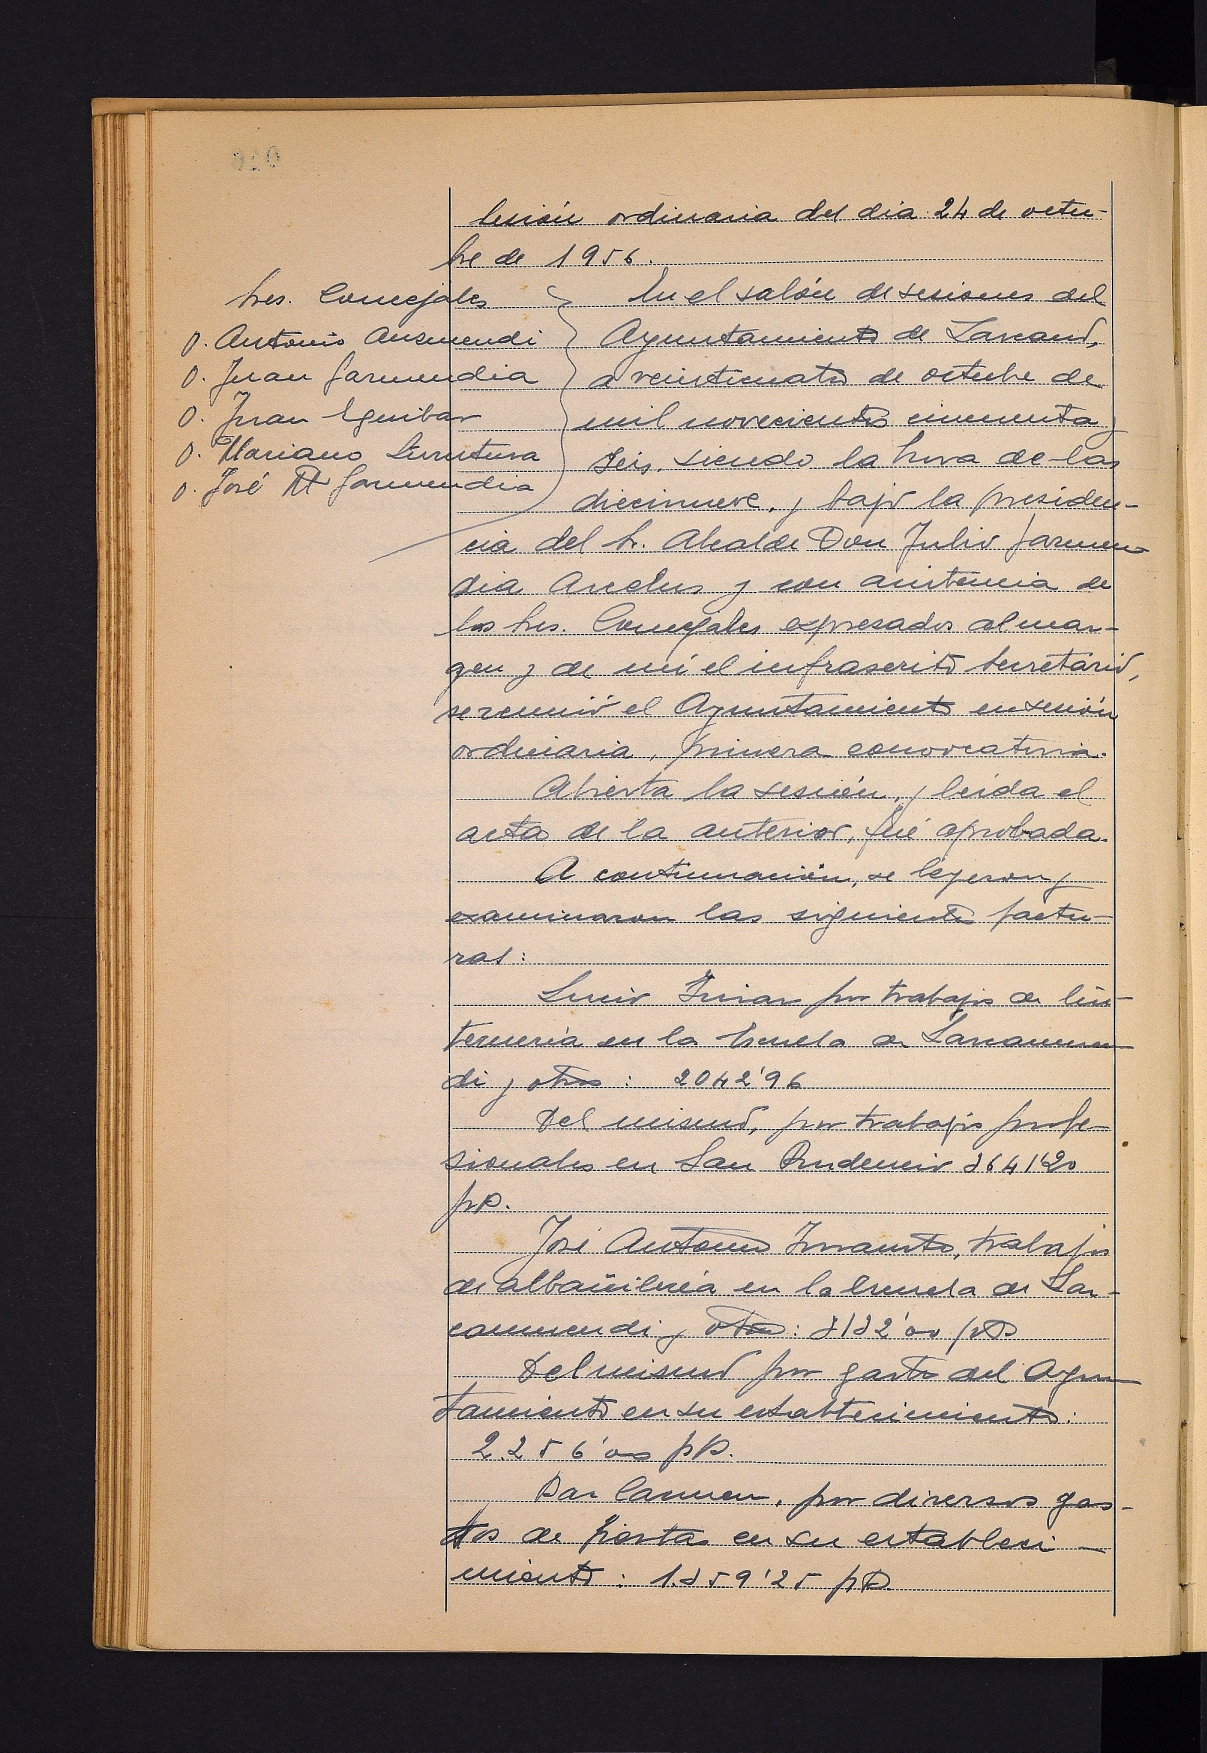 Sesión ordinaria del dia 24 de octu-
bre de 1956.
Sres. Concejales
D. Antonio Auzmendi
D. Juan Garmendia
D. Juan Eguibar
D. Mariano Lirutura
D. José Mª Garmendia
En el salón de sesiones del
Ayuntamiento de Lazcano,
a veinticuatro de octubre de
mil novecientos cincuenta y
seis, siendo la hora de las
diecinueve, y bajo la presiden-
cia del Sr. Alcalde Don Julio Garmen-
dia y con asistencia de
los Sres. Concejales expresados al mar-
gen y de mí el infrascrito Secretario,
se reunió el Ayuntamiento en sesión
ordinaria, primera convocatoria.
Abierta la sesión, y leída el
acta de la anterior, fué aprobada.
A continuación, se leyeron y
examinaron las siguientes factu-
ras:
Lucio por trabajos de lin-
ternería en la Escuela de Lazcanomen-
di y otros: 2042'96
Del mismo, por trabajos profe-
sionales en San Prudencio 3641'20
pts.
José Antonio trabajos
de albañilería en la Escuela de Laz-
canomendi y otros: 3132'00 pts
Del mismo por gastos del Ayun-
tamiento en su establecimiento:
2.256'00 pts.
Bar Carmen, por diversos gas-
tos de fiestas en su estableci-
miento: 1.359'25 pts.